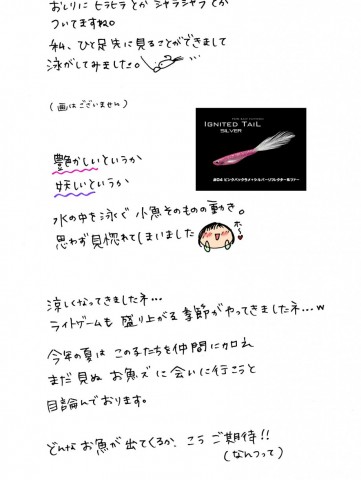 おしりに ヒラヒラとか シャラシャラとか
ついてますね。
私、ひと足先に見ることができまして
泳がしてみました。
(画はございません)
IGNITED TAIL
SILVER
#04 ピンクバックラメ・シルバーリフレクター&ファー
艶かしいというか
妖しいというか
水の中を泳ぐ 小魚そのものの動き。
思わず見惚れてしまいました
ホ〜
涼しくなってきましたネ…
ライトゲームも 盛り上がる季節がやってきましたネ…w
今年の夏は この子たちを仲間に加え
まだ見ぬ お魚ズに会いに行こうと
目論んでおります。
どんな お魚が出てくるか、こう ご期待!!
(なんつって)